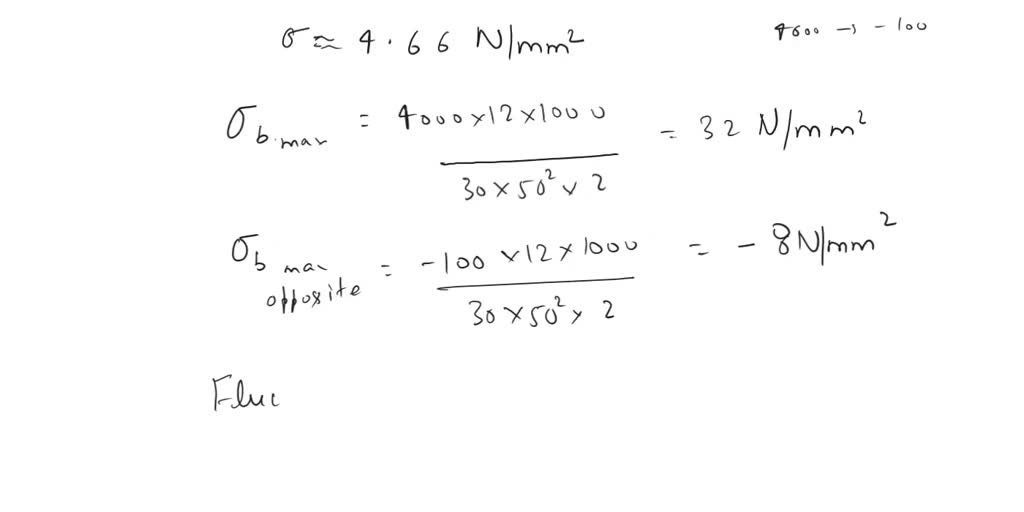 σ ≈ 4.66 N/mm²
4000 → -100
σ b.max = 4000×12×1000 / 30×50²×2 = 32 N/mm²
σ b max opposite = -100×12×1000 / 30×50²×2 = -8N/mm²
Fluc